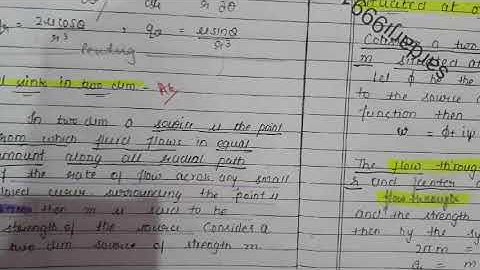 = 2μcosθ / r³ , qθ = μsinθ / r³
Pending
sink in two dim -
In two dim a source is the point
from which fluid flows in equal
amount along all radial path
If the rate of flow across any small
closed curve surrounding the point is
then m is said to be
strength of the source. Consider a
two dim source of strength m
situated at o
Consider a two
m situated at
Let ϕ be the
to the source
function then
w = ϕ + iψ
The flow through
and center
flow through
and the strength
then by the
2πm =